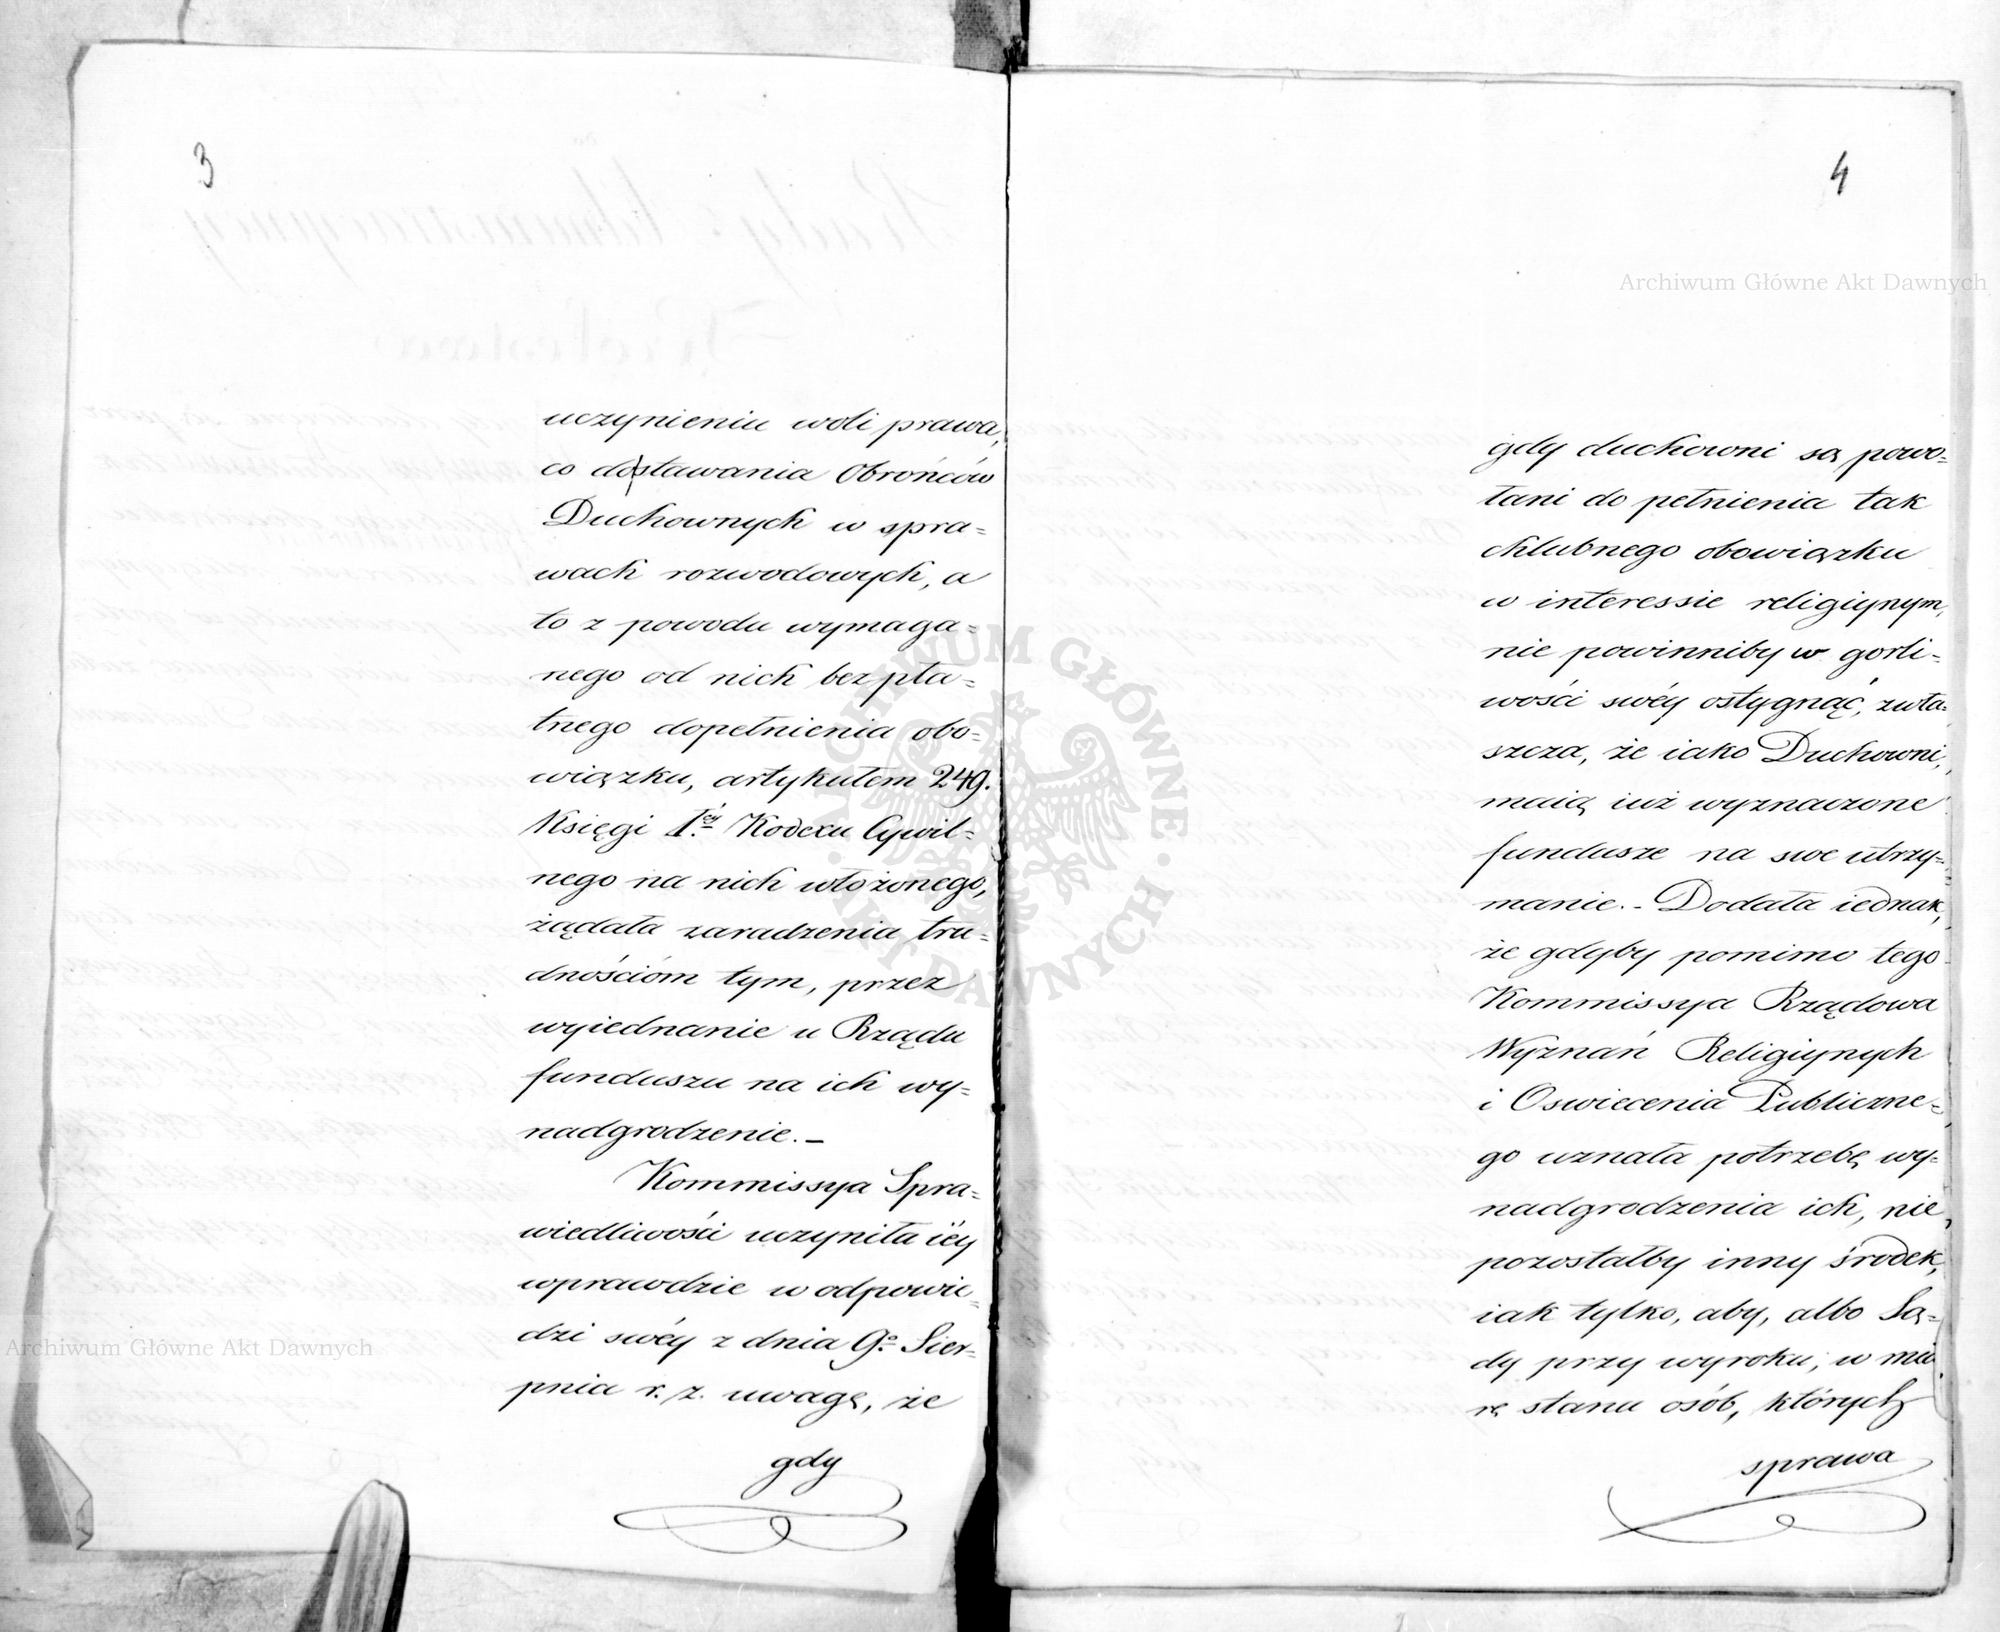 3
uczynieniu woli prawa,
co do stawania Obrońców
Duchownych w spra=
wach rozwodowych, a
to z powodu wymaga=
nego od nich bezpła=
tnego dopełnienia obo=
wiązku, artykułem 249.
Księgi 1éy Kodexu Cywil=
nego na nich włożonego,
żądała zaradzenia tru=
dnościóm tym, przez
wyiednanie u Rządu
funduszu na ich wy=
nadgrodzenie. –
Kommissya Spra=
wiedliwości uczyniła iéy
wprawdzie w odpowie=
dzi swéy z dnia 9o Sier=
pnia r. z. uwagę, że
gdy
4
gdy duchowni są powo=
łani do pełnienia tak
chlubnego obowiązku
w interessie religiynym,
nie powinniby w gorli=
wości swéy ostygnąć, zwła=
szcza, że iako Duchowni,
maią iuż wyznaczone
fundusze na swe utrzy=
manie. – Dodała iednak,
że gdyby pomimo tego
Kommissya Rządowa
Wyznań Religiynych
i Oswiecenia Publiczne=
go uznała potrzebę wy=
nadgrodzenia ich, nie
pozostałby inny środek,
iak tylko, aby, albo Są=
dy przy wyroku, w mia
rę stanu osób, których
sprawa
Archiwum Główne Akt Dawnych
Archiwum Główne Akt Dawnych
ARCHIWUM GŁÓWNE · AKT DAWNYCH ·